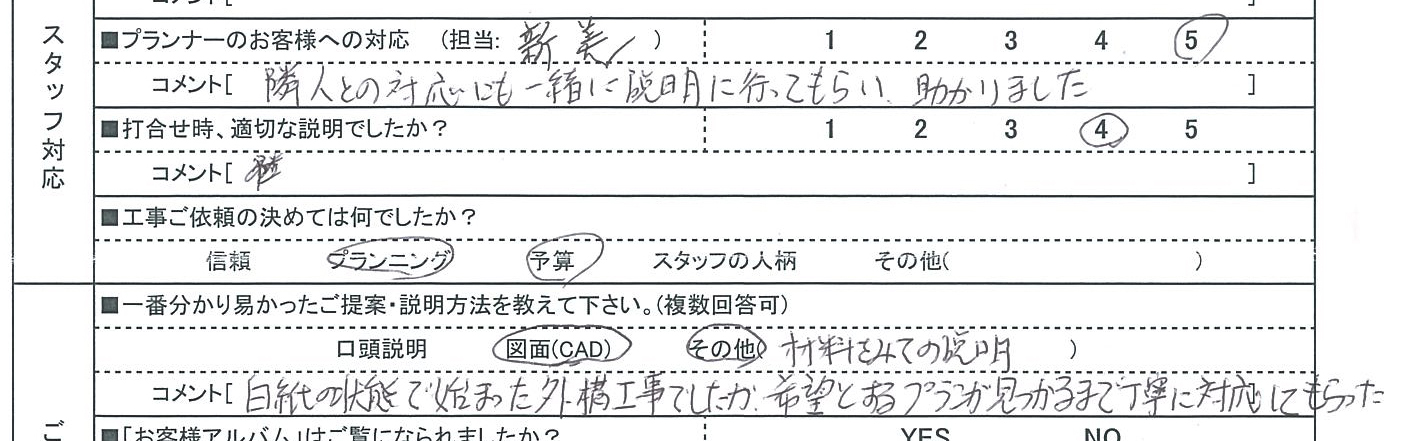 コメント[ ]
スタッフ対応
■プランナーのお客様への対応 (担当: 新美 ) 1 2 3 4 5
コメント[ 隣人との対応にも一緒に説明に行ってもらい、助かりました ]
■打合せ時、適切な説明でしたか? 1 2 3 4 5
コメント[ ]
■工事ご依頼の決めては何でしたか?
信頼 プランニング 予算 スタッフの人柄 その他( )
■一番分かり易かったご提案・説明方法を教えて下さい。(複数回答可)
口頭説明 図面(CAD) その他( 材料をみての説明 )
コメント[ 白紙の状態で始まった外構工事でしたが、希望とあるプランが見つかるまで丁寧に対応してもらった
ご
■「お客様アルバム」はご覧になられましたか? YES NO